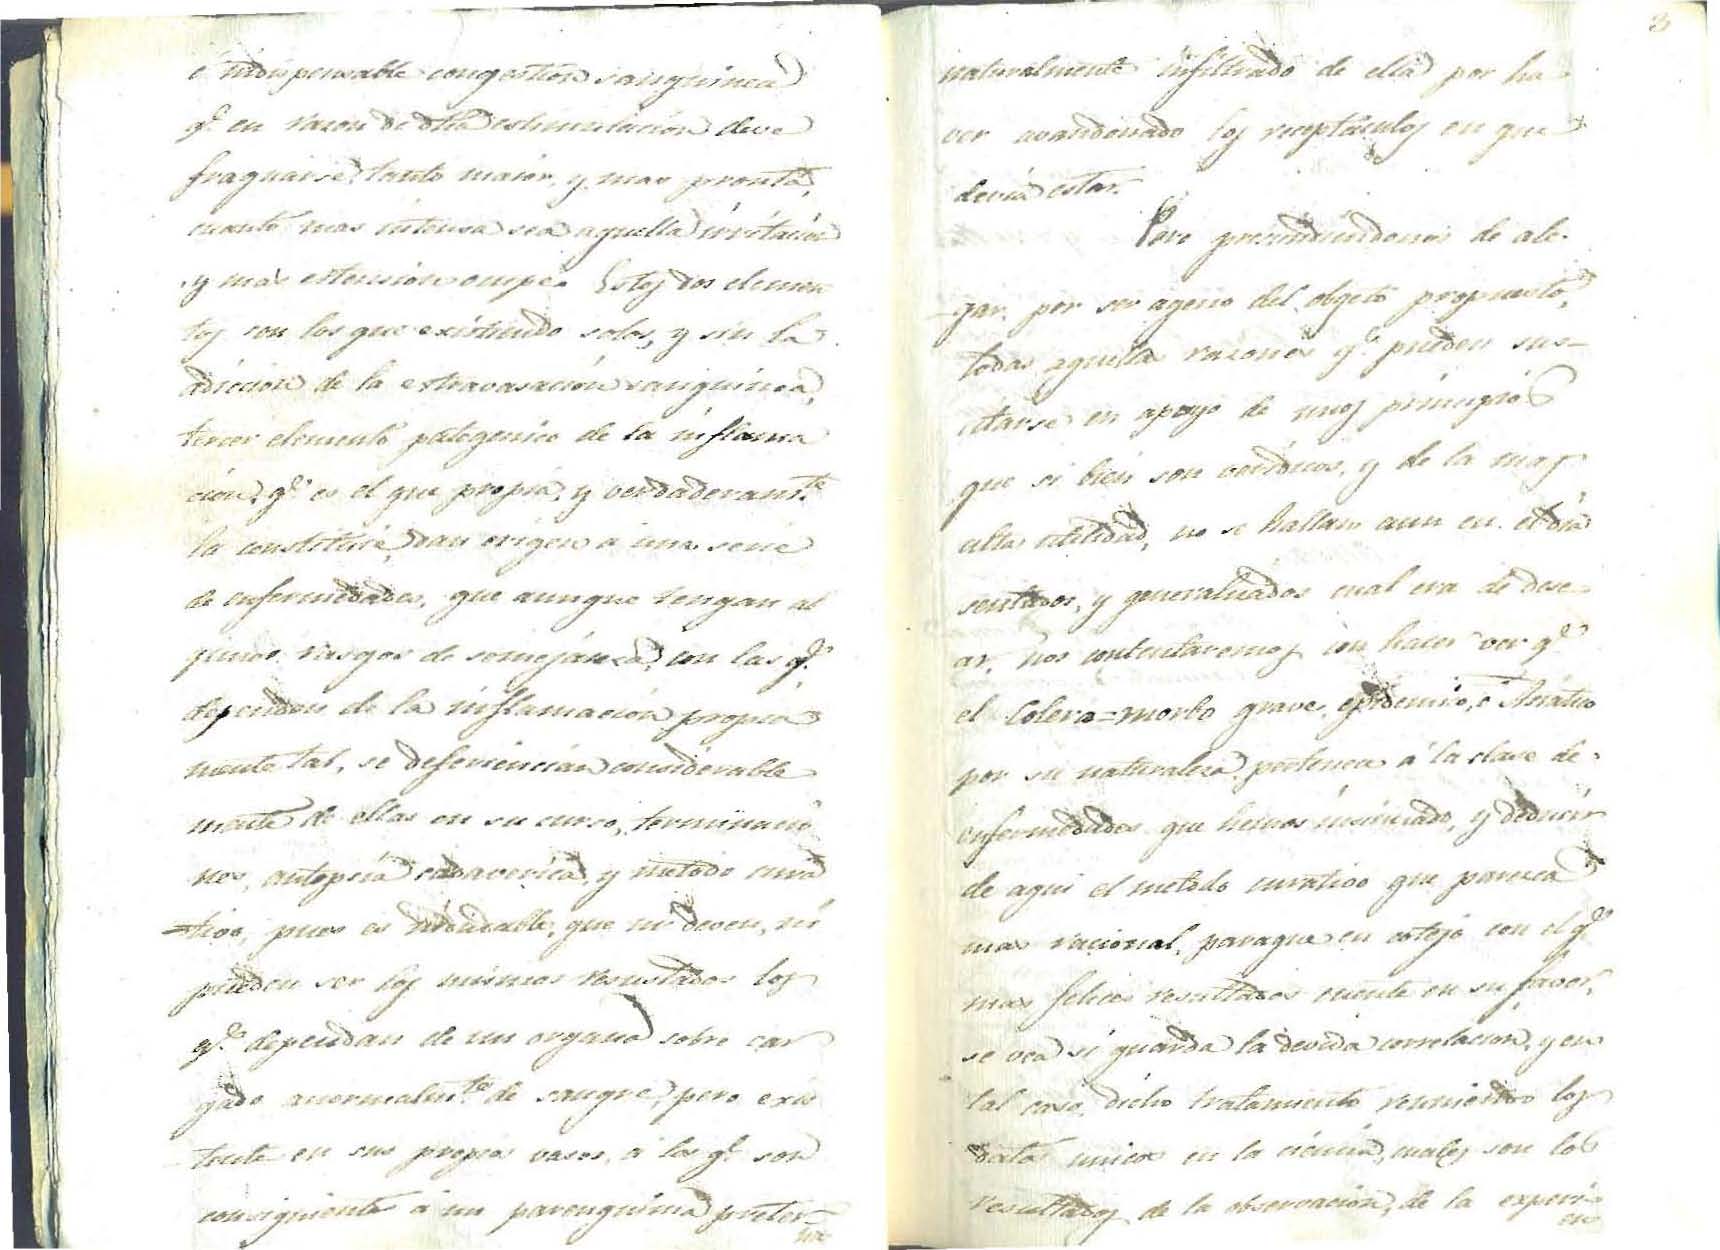 é indispensable congestion sanguinea
q.e en razon de dha estimulación deve
fraguarse tanto maior, y mas pronta,
cuanto mas intensa sea aquella irritación
y mas estension ocupe. Estos dos elemen
tos son los que existiendo solos, y sin la
adiccion de la estravasación sanguinea,
tercer elemento patogenico de la inflama
ción, q.e es el que propia, y verdaderam.te
la constituie, dan origen á una serie
de enfermedades, que aunque tengan al
gunos rasgos de semejánza, con las q.e
dependen de la inflamación propia
mente tal, se deferiencian considerable
mente de ellas en su curso, terminacio
nes, autopsia cadaverica, y metodo cura
=tivo, pues es indudable, que ni deven, ni
pueden ser los mismos resustados los
q.e dependan de un organo sobre car
gado anormalm.te de sangre, pero exis
tente en sus propios vasos, á los q.e son
consiguientes á un parenquima preter=
na
3
naturalmente infiltrado de ella por ha
ver avandonado los receptáculos en que
devia estar.
Pero prescindiendonos de ale-
gar, por ser ageno del objeto propuesto,
todas aquellas razones q.e pueden sus=
citarse en apoyo de unos principios
que si bien son verídicos, y de la may
utilidad, no se hallan aun en el dia
sentados, y generalizados cual era de dese=
ar, nos contentaremos con hacer ver q.e
el Colera=morbo grave, epidemico, ó Asiatico
por su naturaleza pertenece á la clase de
enfermedades que hemos insinuado, y deducir
de aqui el metodo curativo que parezca
mas racional, paraque en cotejo con el q.e
mas felices resultados cuente en su favor,
se vea si guarda la devida correlacion, y en
tal caso, dicho tratamiento reuniendo los
datos unicos en la ciéncia, cuales son los
resultados de la observación, de la experi=
en